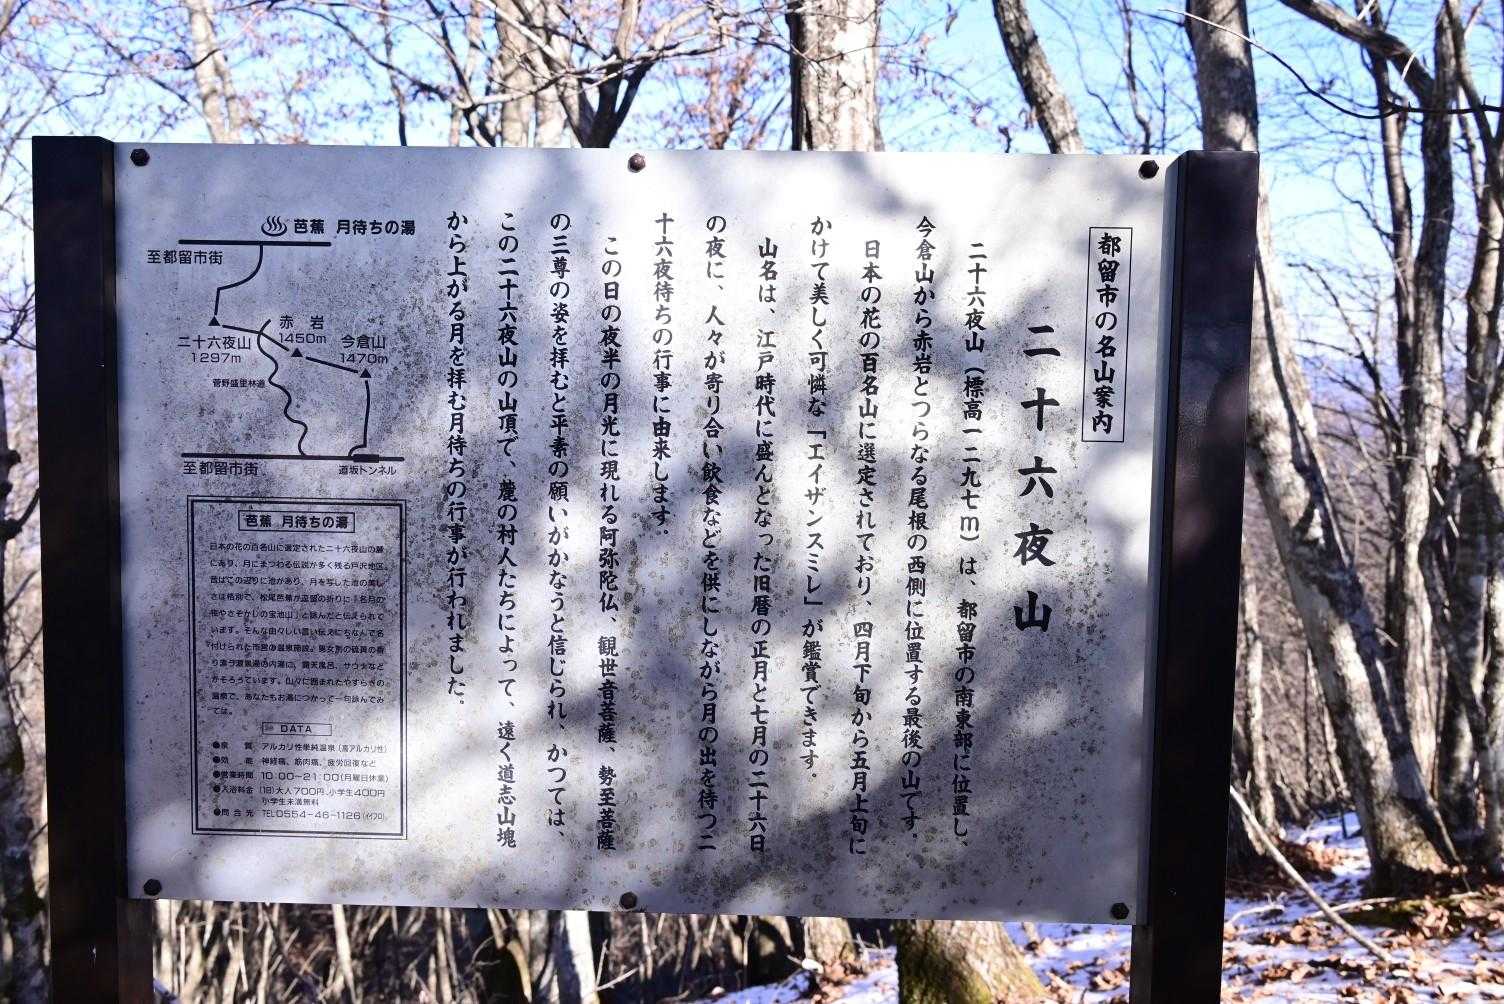 都留市の名山案内
二十六夜山
二十六夜山（標高一二九七m）は、都留市の南東部に位置し、
今倉山から赤岩とつらなる尾根の西側に位置する最後の山です。
日本の花の百名山に選定されており、四月下旬から五月上旬に
かけて美しく可憐な「エイザンスミレ」が鑑賞できます。
山名は、江戸時代に盛んとなった旧暦の正月と七月の二十六日
の夜に、人々が寄り合い飲食などを供にしながら月の出を待つ二
十六夜待ちの行事に由来します。
この日の夜半の月光に現れる阿弥陀仏、観世音菩薩、勢至菩薩
の三尊の姿を拝むと平素の願いがかなうと信じられ、かつては、
この二十六夜山の山頂で、麓の村人たちによって、遠く道志山塊
から上がる月を拝む月待ちの行事が行われました。
芭蕉 月待ちの湯
至都留市街
赤岩
1450m
今倉山
1470m
二十六夜山
1297m
菅野盛里林道
至都留市街
道坂トンネル
芭蕉 月待ちの湯
日本の花の百名山に選定された二十六夜山の麓
にあり、月にまつわる伝説が多く残る戸沢地区。
昔はこの辺りに池があり、月を写した池の美し
さは格別で、松尾芭蕉が逗留の折りに「名月の
夜やさぞかしの宝池山」と詠んだと伝えられて
います。そんな由々しい言い伝えにちなんで名
付けられた市営の温泉施設。男女別の硫黄の香
り漂う源泉湯の内湯に、露天風呂、サウナなど
がそろっています。山々に囲まれたやすらぎの
温泉で、あなたもお湯につかって一句詠んでみ
ては。
DATA
●泉質 アルカリ性単純温泉（高アルカリ性）
●効能 神経痛、筋肉痛、疲労回復など
●営業時間 10:00〜21:00（月曜日休業）
●入浴料金 （1日）大人700円、小学生400円
小学生未満無料
●問合先 TEL0554-46-1126（イイフロ）